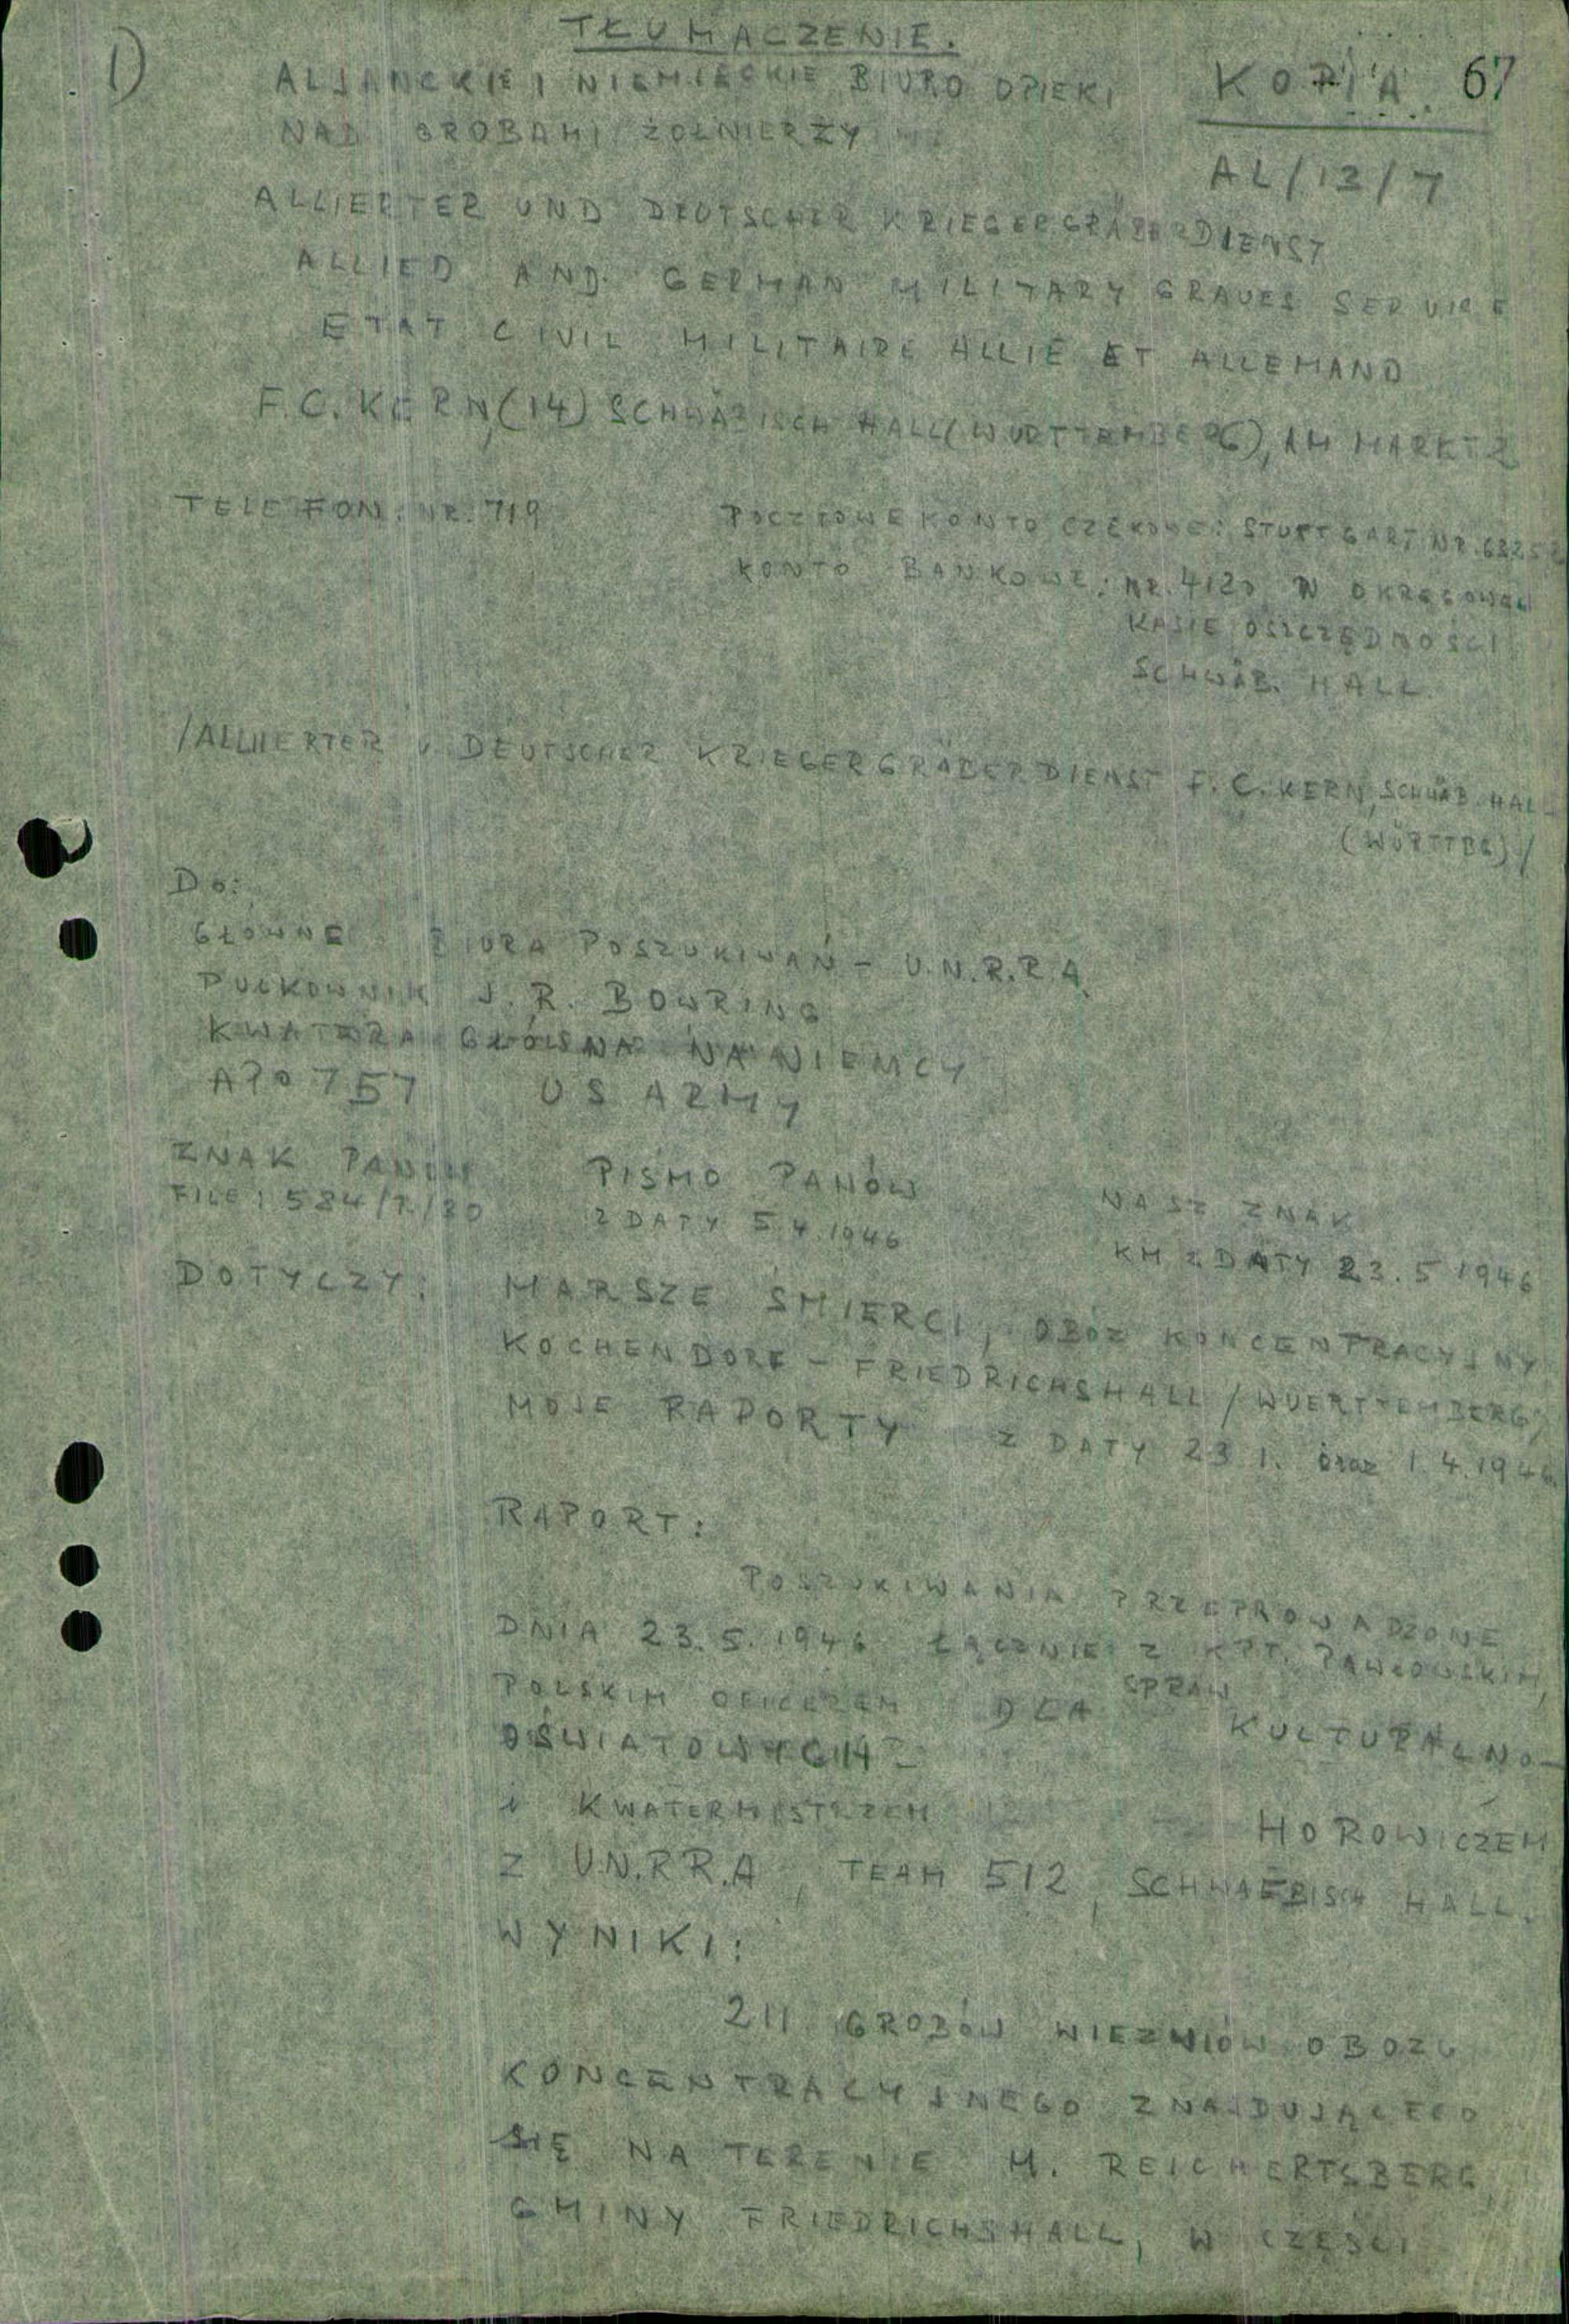 1)
TŁUMACZENIE.
KOPIA. 67
ALJANCKIE I NIEMIECKIE BIURO OPIEKI
NAD GROBAMI ŻOŁNIERZY
AL/13/7
ALLIERTER UND DEUTSCHER KRIEGERGRÄBERDIENST
ALLIED AND GERMAN MILITARY GRAVES SERVICE
ETAT CIVIL MILITAIRE ALLIE ET ALLEMAND
F.C. KERN, (14) SCHWÄBISCH HALL (WURTTEMBERG), AM MARKT 2
TELEFON: NR. 719
POCZTOWE KONTO CZEKOWE: STUTTGART NR.
KONTO BANKOWE: NR. 4120 W OKRĘGOWEJ
KASIE OSZCZĘDNOŚCI
SCHWÄB. HALL
/ALLIIERTER U. DEUTSCHER KRIEGERGRÄBERDIENST F. C. KERN, SCHWÄB. HALL
(WÜRTTBG)/
Do:
GŁÓWNE BIURA POSZUKIWAŃ - U.N.R.R.A.
PUŁKOWNIK J. R. BOWRING
KWATERA GŁÓWNA NA NIEMCY
APO 757 US ARMY
ZNAK PANÓW PISMO PANÓW NASZ ZNAK
FILE: 584/7/20 Z DATY 5.4.1946 KM Z DATY 23.5.1946
DOTYCZY: MARSZE ŚMIERCI, OBÓZ KONCENTRACYJNY
KOCHENDORF - FRIEDRICHSHALL /WUERTTEMBERG/
MOJE RAPORTY Z DATY 23 1. oraz 1.4.1946
RAPORT:
POSZUKIWANIA PRZEPROWADZONE
DNIA 23.5.1946 ŁĄCZNIE Z KPT. PAWŁOWSKIM,
POLSKIM OFICEREM DLA SPRAW KULTURALNO-
OŚWIATOWYCH -
i KWATERMISTRZEM HOROWICZEM
Z U.N.R.R.A, TEAM 512, SCHWAEBISCH HALL.
WYNIKI:
211 GROBÓW WIEŹNIÓW OBOZU
KONCENTRACYJNEGO ZNAJDUJĄCEGO
SIĘ NA TERENIE M. REICHERTSBERG,
GMINY FRIEDRICHSHALL, W CZĘŚCI